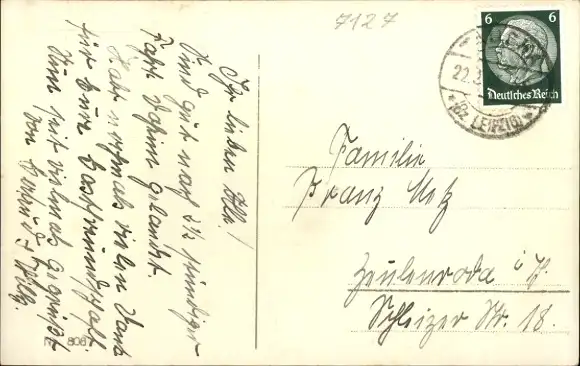 7127
6 6
Deutsches Reich
22.3.
(Bz. LEIPZIG)
Ihr lieben All!
Sind gut nach 2½ stündiger
Fahrt daheim gelandet.
Habt nochmals vielen Dank
für Eure Gastfreundschaft.
Nun seit vielmals gegrüßt
von
Familie
Franz Metz
Zeulenroda i. Th.
Schleizer Str. 18.
806